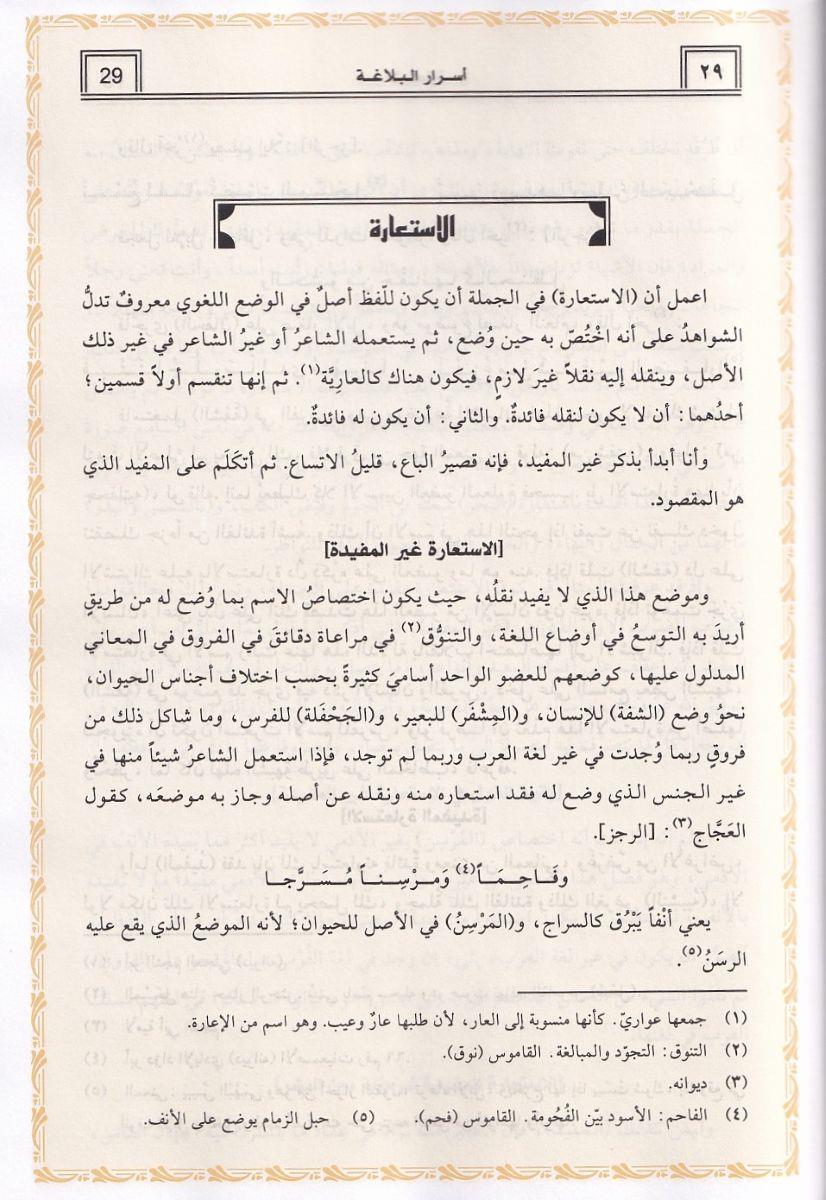 ٢٩
أسرار البلاغة
29
الاستعارة
اعمل أن (الاستعارة) في الجملة أن يكون للّفظ أصلٌ في الوضع اللغوي معروفٌ تدلُّ
الشواهدُ على أنه اخْتُصّ به حين وُضع، ثم يستعمله الشاعرُ أو غيرُ الشاعر في غير ذلك
الأصل، وينقله إليه نقلاً غيرَ لازمٍ، فيكون هناك كالعاريَّة(١). ثم إنها تنقسم أولاً قسمين؛
أحدُهما: أن لا يكون لنقله فائدةٌ. والثاني: أن يكون له فائدةٌ.
وأنا أبدأ بذكر غير المفيد، فإنه قصيرُ الباع، قليلُ الاتساع. ثم أتكَلَم على المفيد الذي
هو المقصود.
[الاستعارة غير المفيدة]
وموضع هذا الذي لا يفيد نقلُه، حيث يكون اختصاصُ الاسم بما وُضع له من طريقٍ
أريدَ به التوسعُ في أوضاع اللغة، والتنوُّق(٢) في مراعاة دقائقَ في الفروق في المعاني
المدلول عليها، كوضعهم للعضو الواحد أساميَ كثيرةً بحسب اختلاف أجناس الحيوان،
نحوُ وضع (الشفة) للإنسان، و(المِشْفَر) للبعير، و(الجَحْفَلة) للفرس، وما شاكل ذلك من
فروقٍ ربما وُجدت في غير لغة العرب وربما لم توجد، فإذا استعمل الشاعرُ شيئاً منها في
غير الجنس الذي وضع له فقد استعاره منه ونقله عن أصله وجاز به موضعَه، كقول
العَجَّاج(٣): [الرجز].
وفَـاحِـمَـاً(٤) وَمـرْسِـنـاً مُـسَـرَّجـا
يعني أنْفاً يَبْرُق كالسراج، و(المَرْسِنُ) في الأصل للحيوان؛ لأنه الموضعُ الذي يقع عليه
الرسَنُ(٥).
(١) جمعها عواريّ. كأنها منسوبة إلى العار، لأن طلبها عارٌ وعيب. وهو اسم من الإعارة.
(٢) التنوق: التجوّد والمبالغة. القاموس (نوق).
(٣) ديوانه.
(٤) الفاحم: الأسود بيّن الفُحُومة. القاموس (فحم). (٥) حبل الزمام يوضع على الأنف.